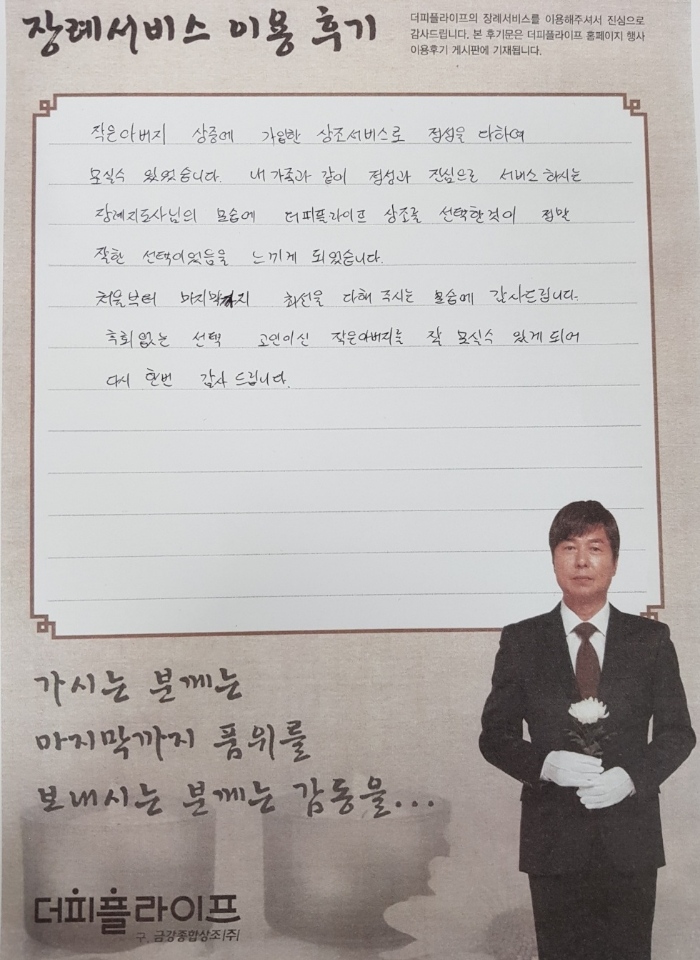 장례서비스 이용 후기
더피플라이프의 장례서비스를 이용해주셔서 진심으로
감사드립니다. 본 후기문은 더피플라이프 홈페이지 행사
이용후기 게시판에 기재됩니다.
작은아버지 상중에 가입한 상조서비스로 정성을 다하여
모실수 있었습니다. 내 가족과 같이 정성과 진심으로 서비스 하시는
장례지도사님의 모습에 더피플라이프 상조를 선택한것이 정말
잘한 선택이었음을 느끼게 되었습니다.
처음부터 마지막까지 최선을 다해 주시는 모습에 감사드립니다.
후회없는 선택 고인이신 작은아버지를 잘 모실수 있게 되어
다시 한번 감사 드립니다.
가시는 분께는
마지막까지 품위를
보내시는 분께는 감동을...
더피플라이프
구. 금강종합상조(주)